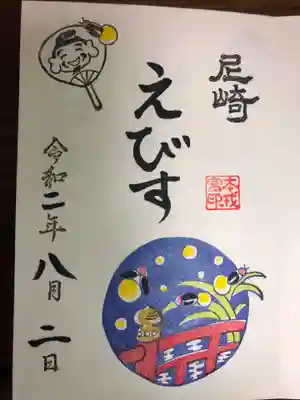 尼崎
えびす
令和二年八月二日